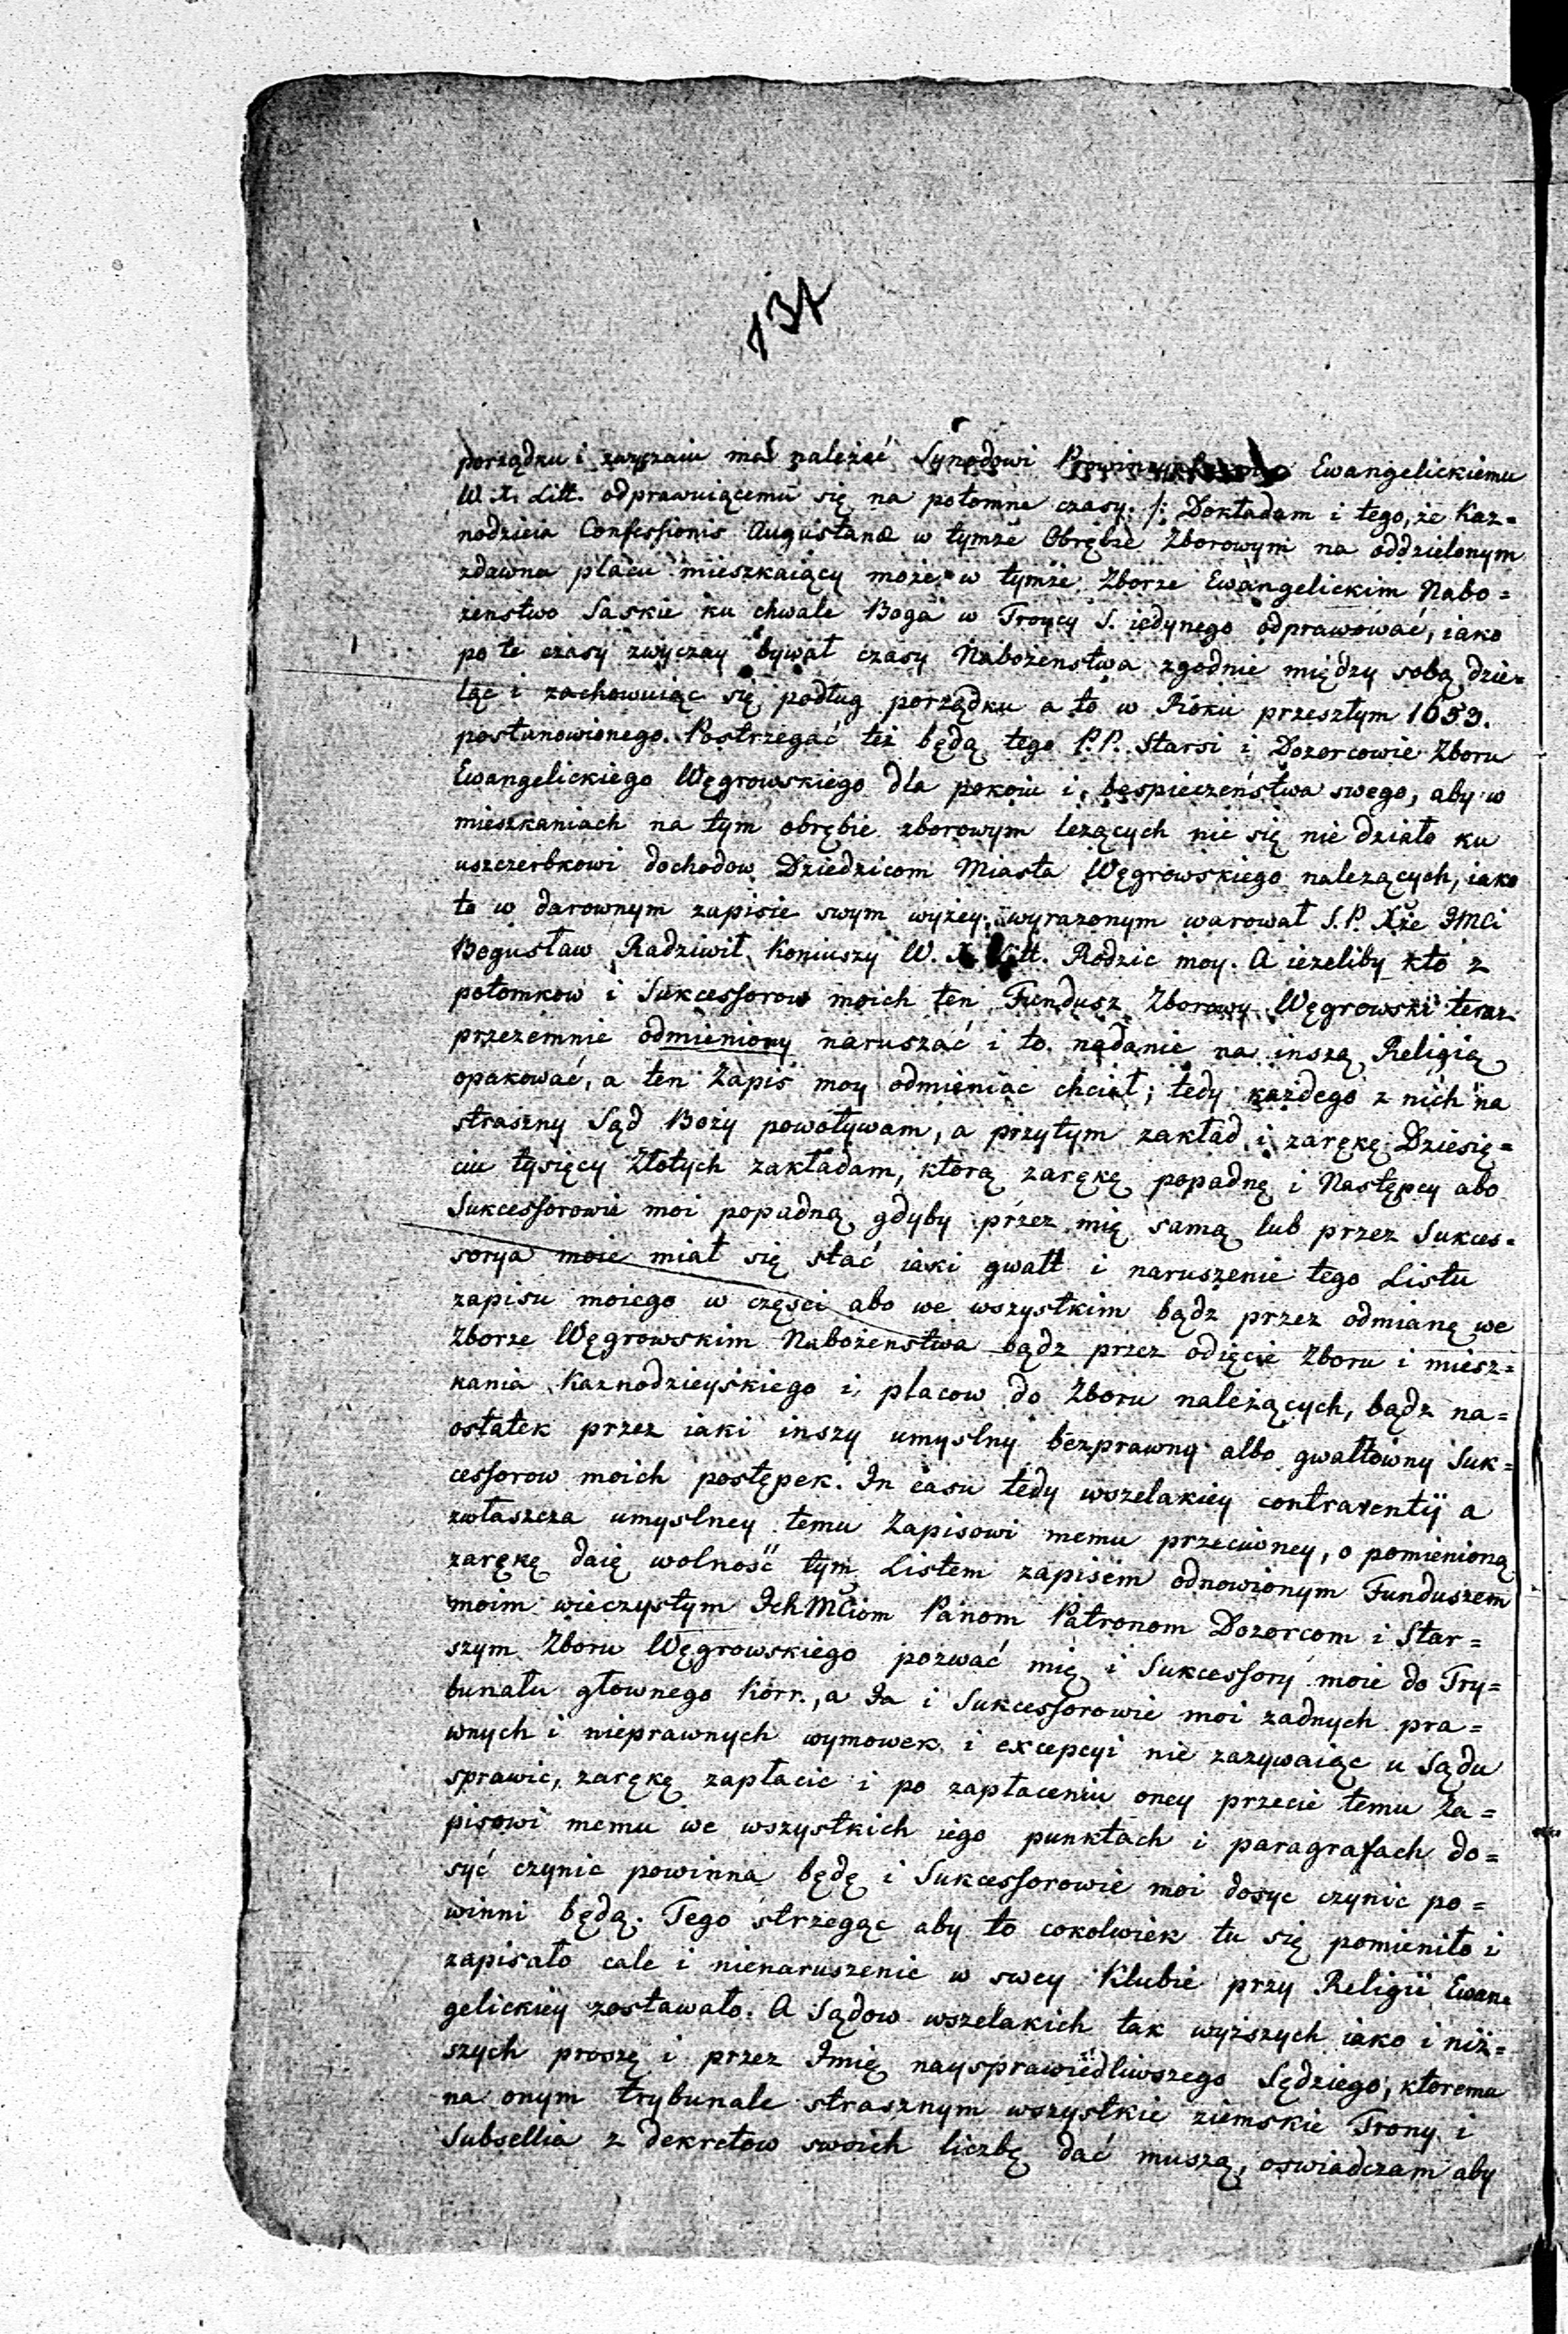 134
porządku i zwyczaiu ma należeć Synodowi Ewangelickiemu
W. X. Litt. odprawuiącemu się na potomne czasy. /: Dokładam i tego, że Kaz=
nodzieia Confessionis Augustanæ w tymże Obrębie Zborowym na oddzielonym
zdawna placu mieszkaiący może w tymże Zborze Ewangelickim Nabo=
żenstwo Saskie ku chwale Boga w Troycy S. iedynego odprawować, iako
po te czasy zwyczay bywał czasy Nabożenstwa zgodnie między sobą dzie=
ląc i zachowuiąc się podług porządku a to w Roku przeszłym 1653.
postanowionego. Postrzegać też będą tego P.P. Starsi i Dozorcowie Zboru
Ewangelickiego Węgrowskiego dla pokoiu i bespieczeństwa swego, aby w
mieszkaniach na tym obrębie zborowym leżących nic się nie działo ku
uszczerbkowi dochodow Dziedzicom Miasta Węgrowskiego należących, iako
to w darownym zapisie swym wyżey wyrażonym warował S.P. Xże JMCi
Bogusław Radziwił Koniuszy W. X. Litt. Rodzic moy. A ieżeliby kto z
potomkow i Sukcessorow moich ten Fundusz Zborowy Węgrowski teraz
przezemnie odmieniony naruszać i to nadanie na inszą Religią
opakować, a ten Zapis moy odmieniac chciał; tedy każdego z nich na
straszny Sąd Boży powoływam, a przytym zakład i zarękę Dziesię=
ciu tysięcy Złotych zakładam, ktorą zarękę popadnę i Następcy abo
Sukcessorowie moi popadną gdyby przez mię samą lub przez Sukces=
sorya moie miał się stać iaki gwałt i naruszenie tego Listu
zapisu moiego w części abo we wszystkim bądz przez odmianę we
Zborze Węgrowskim Nabożenstwa bądz przez odięcie Zboru i miesz=
kania Kaznodzieyskiego i placow do Zboru należących, bądz na=
ostatek przez iaki inszy umyslny bezprawny albo gwałtowny Suk=
cessorow moich postępek. In casu tedy wszelakiey contraventij a
zwłaszcza umyslney temu Zapisowi memu przeciwney, o pomienioną
zarękę daię wolność tym Listem zapisem odnowionym Funduszem
moim wieczystym Ich MCiom Panom Patronom Dozorcom i Star=
szym Zboru Węgrowskiego pozwać mię i Sukcessory moie do Try=
bunału głownego Korr., a Ja i Sukcessorowie moi żadnych pra=
wnych i nieprawnych wymowek i excepcyi nie zażywaiąc u Sądu
sprawic, zarękę zapłacic i po zapłaceniu oney przecie temu Za=
pisowi memu we wszystkich iego punktach i paragrafach do=
syć czynic powinna będę i Sukcessorowie moi dosyc czynic po=
winni będą. Tego strzegąc aby to cokolwiek tu się pomieniło i
zapisało cale i nienaruszenie w swey Klubie przy Religii Ewan=
gelickiey zostawało. A Sądow wszelakich tak wyższych iako i niż=
szych proszę i przez Imię naysprawiedliwszego Sędziego, ktoremu
na onym trybunale strasznym wszystkie ziemskie Trony i
Subsellia z dekretow swoich liczbę dać muszą, oswiadczam aby